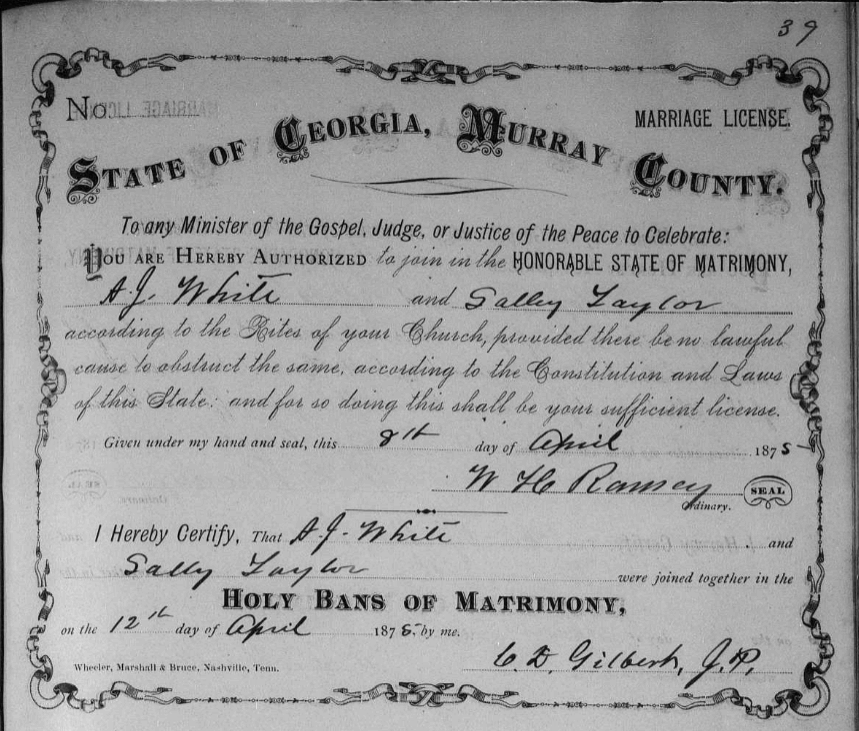 39
No.
MARRIAGE LICENSE.
STATE OF GEORGIA, MURRAY COUNTY.
To any Minister of the Gospel, Judge, or Justice of the Peace to Celebrate:
YOU ARE HEREBY AUTHORIZED to join in the HONORABLE STATE OF MATRIMONY,
A.J. White and Salley Taylor
according to the Rites of your Church, provided there be no lawful
cause to obstruct the same, according to the Constitution and Laws
of this State: and for so doing this shall be your sufficient license.
Given under my hand and seal, this 8th day of April 1875
W H Ramsey SEAL
Ordinary.
I Hereby Certify, That A.J. White and
Sally Taylor were joined together in the
HOLY BANS OF MATRIMONY,
on the 12th day of April 1875, by me.
Wheeler, Marshall & Bruce, Nashville, Tenn.
C. D. Gilbert, J.P.